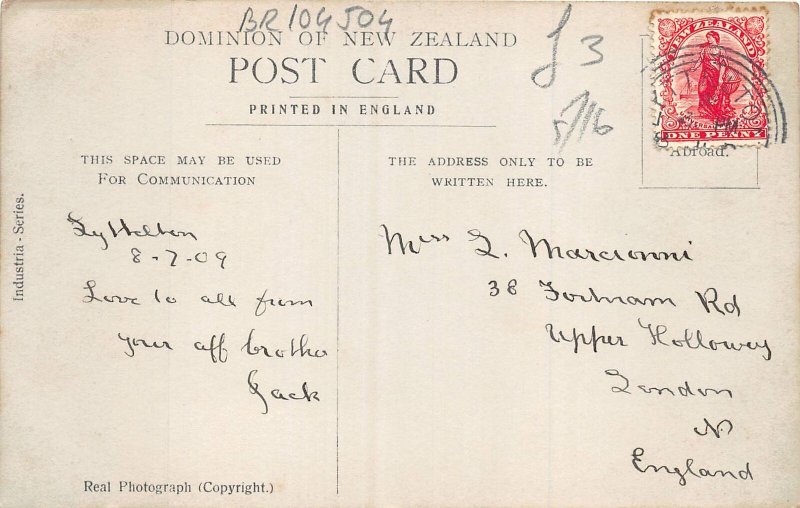 BR104504
DOMINION OF NEW ZEALAND
POST CARD
PRINTED IN ENGLAND
£3
5/16
NEW ZEALAND
UNIVERSAL
ONE PENNY
Abroad.
THIS SPACE MAY BE USED
FOR COMMUNICATION
THE ADDRESS ONLY TO BE
WRITTEN HERE.
Industria - Series.
Lyttelton
8-7-09
Love to all from
your aff brother
Jack
Miss L. Marcionni
38 Fortnam Rd
Upper Holloway
London
N
England
Real Photograph (Copyright.)